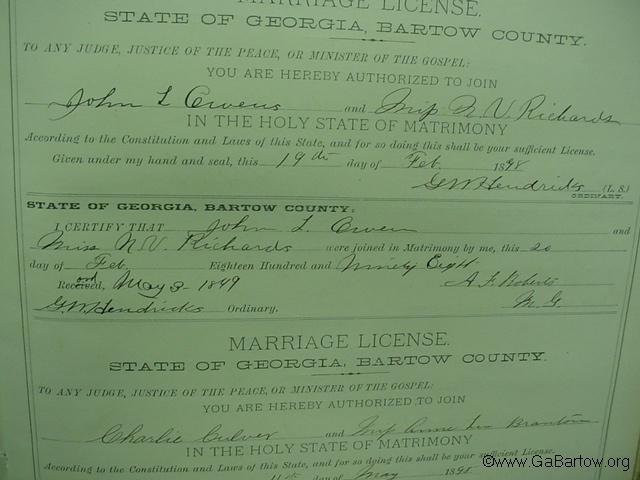 MARRIAGE LICENSE.
STATE OF GEORGIA, BARTOW COUNTY.
TO ANY JUDGE, JUSTICE OF THE PEACE, OR MINISTER OF THE GOSPEL:
YOU ARE HEREBY AUTHORIZED TO JOIN
John L Owens and Miss N. V. Richards
IN THE HOLY STATE OF MATRIMONY
According to the Constitution and Laws of this State, and for so doing this shall be your sufficient License.
Given under my hand and seal, this 19th day of Feb. 1898
G W Hendricks (L. S.)
ORDINARY.
STATE OF GEORGIA, BARTOW COUNTY:
I CERTIFY THAT John L. Owen and
Miss N. V. Richards were joined in Matrimony by me, this 20
day of Feb. Eighteen Hundred and Ninety Eight
Received, May 3- 1899 A. F. Roberts
G. W. Hendricks Ordinary. M. G.
MARRIAGE LICENSE.
STATE OF GEORGIA, BARTOW COUNTY.
TO ANY JUDGE, JUSTICE OF THE PEACE, OR MINISTER OF THE GOSPEL:
YOU ARE HEREBY AUTHORIZED TO JOIN
Charlie Culver and Miss Annie Branton
IN THE HOLY STATE OF MATRIMONY
According to the Constitution and Laws of this State, and for so doing this shall be your sufficient License.
day of May 1898
©www.GaBartow.org